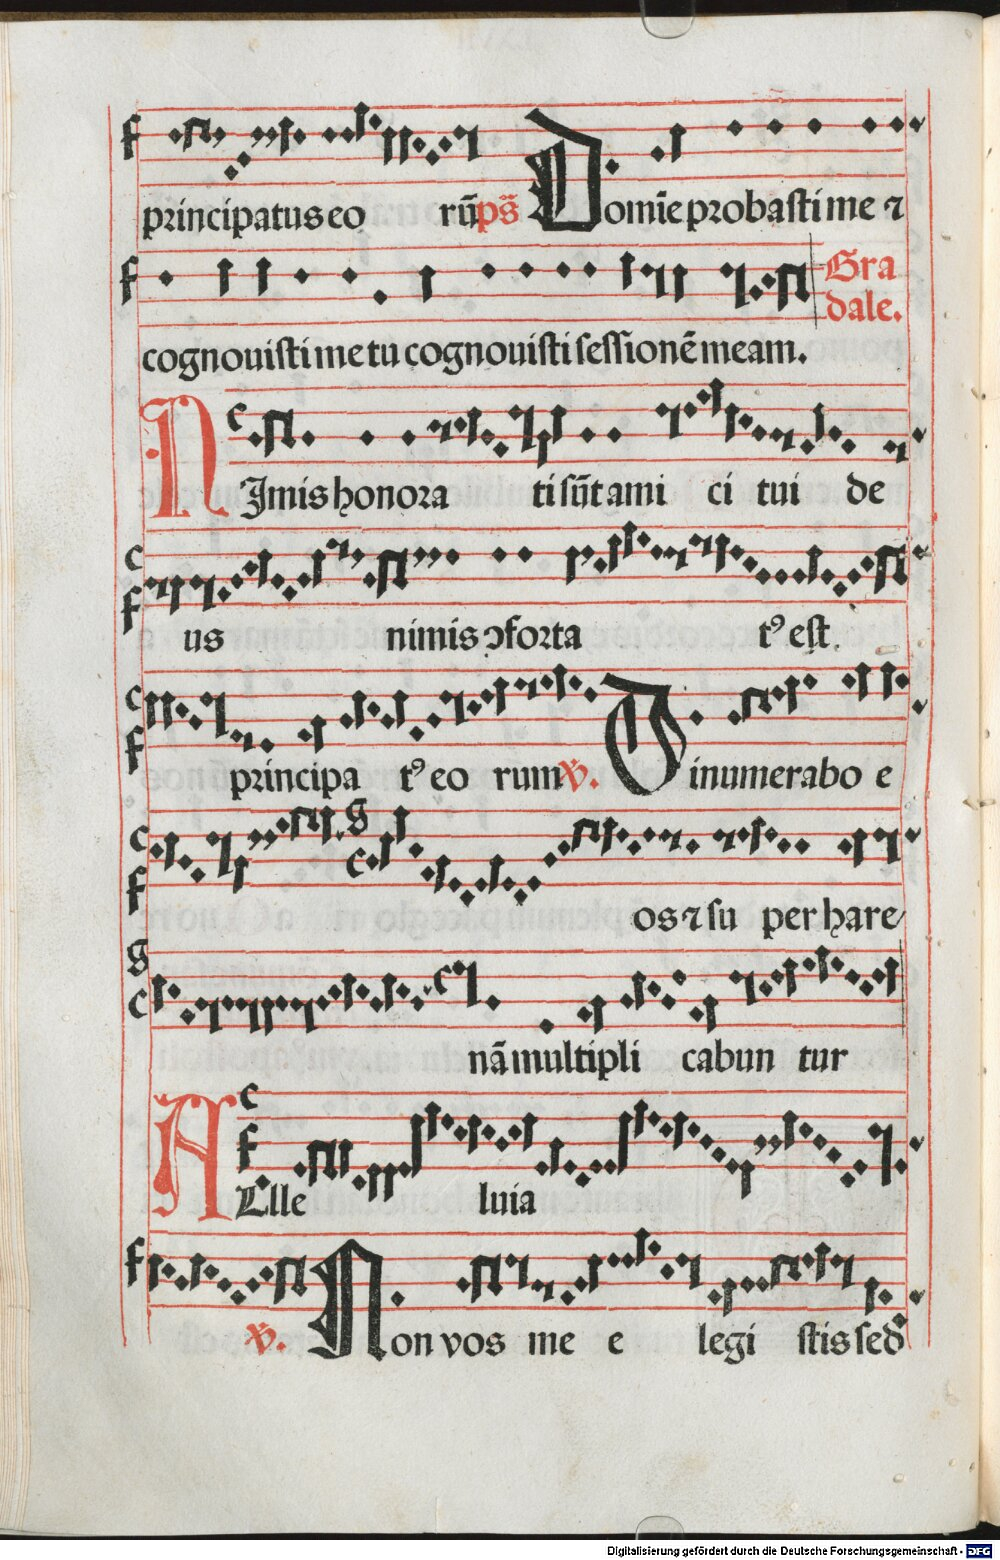 principatus eo rūps̄ Domīe probasti me ⁊
cognouisti me tu cognouisti sessionē meam.
Gra
dale.
NImis honora ti sūt ami ci tui de
us nimis ↄforta tꝰ est.
principa tꝰ eo rum℣. Dinumerabo e
os ⁊ su per hare
nā multipli cabun tur
ALlle luia
℣. Non vos me e legi stis sed
Digitalisierung gefördert durch die Deutsche Forschungsgemeinschaft - DFG